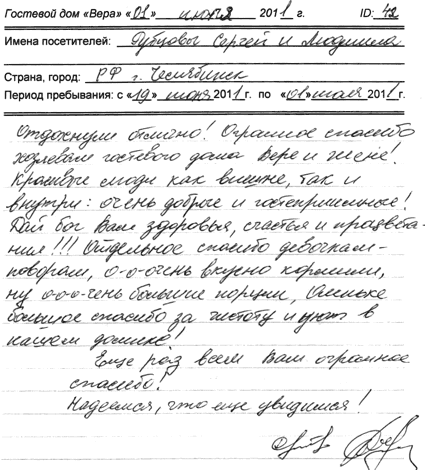 Гостевой дом «Вера» «01» июля 2011 г. ID: 42
Имена посетителей: Рубцовы Сергей и Людмила
Страна, город: РФ г. Челябинск
Период пребывания: с «19» июня 2011 г. по «01» июля 2011 г.
Отдохнули отлично! Огромное спасибо
хозяевам гостевого дома Вере и Жене!
Красивые люди как внешне, так и
внутри: очень доброе и гостеприимные!
Дай бог Вам здоровья, счастья и процвета-
ния!!! Отдельное спасибо девочкам-
поварам, о-о-очень вкусно кормили,
ну о-о-о-чень большие порции,
большое спасибо за чистоту и уют в
нашем домике!
Еще раз всем Вам огромное
спасибо!
Надеемся, что еще увидимся!